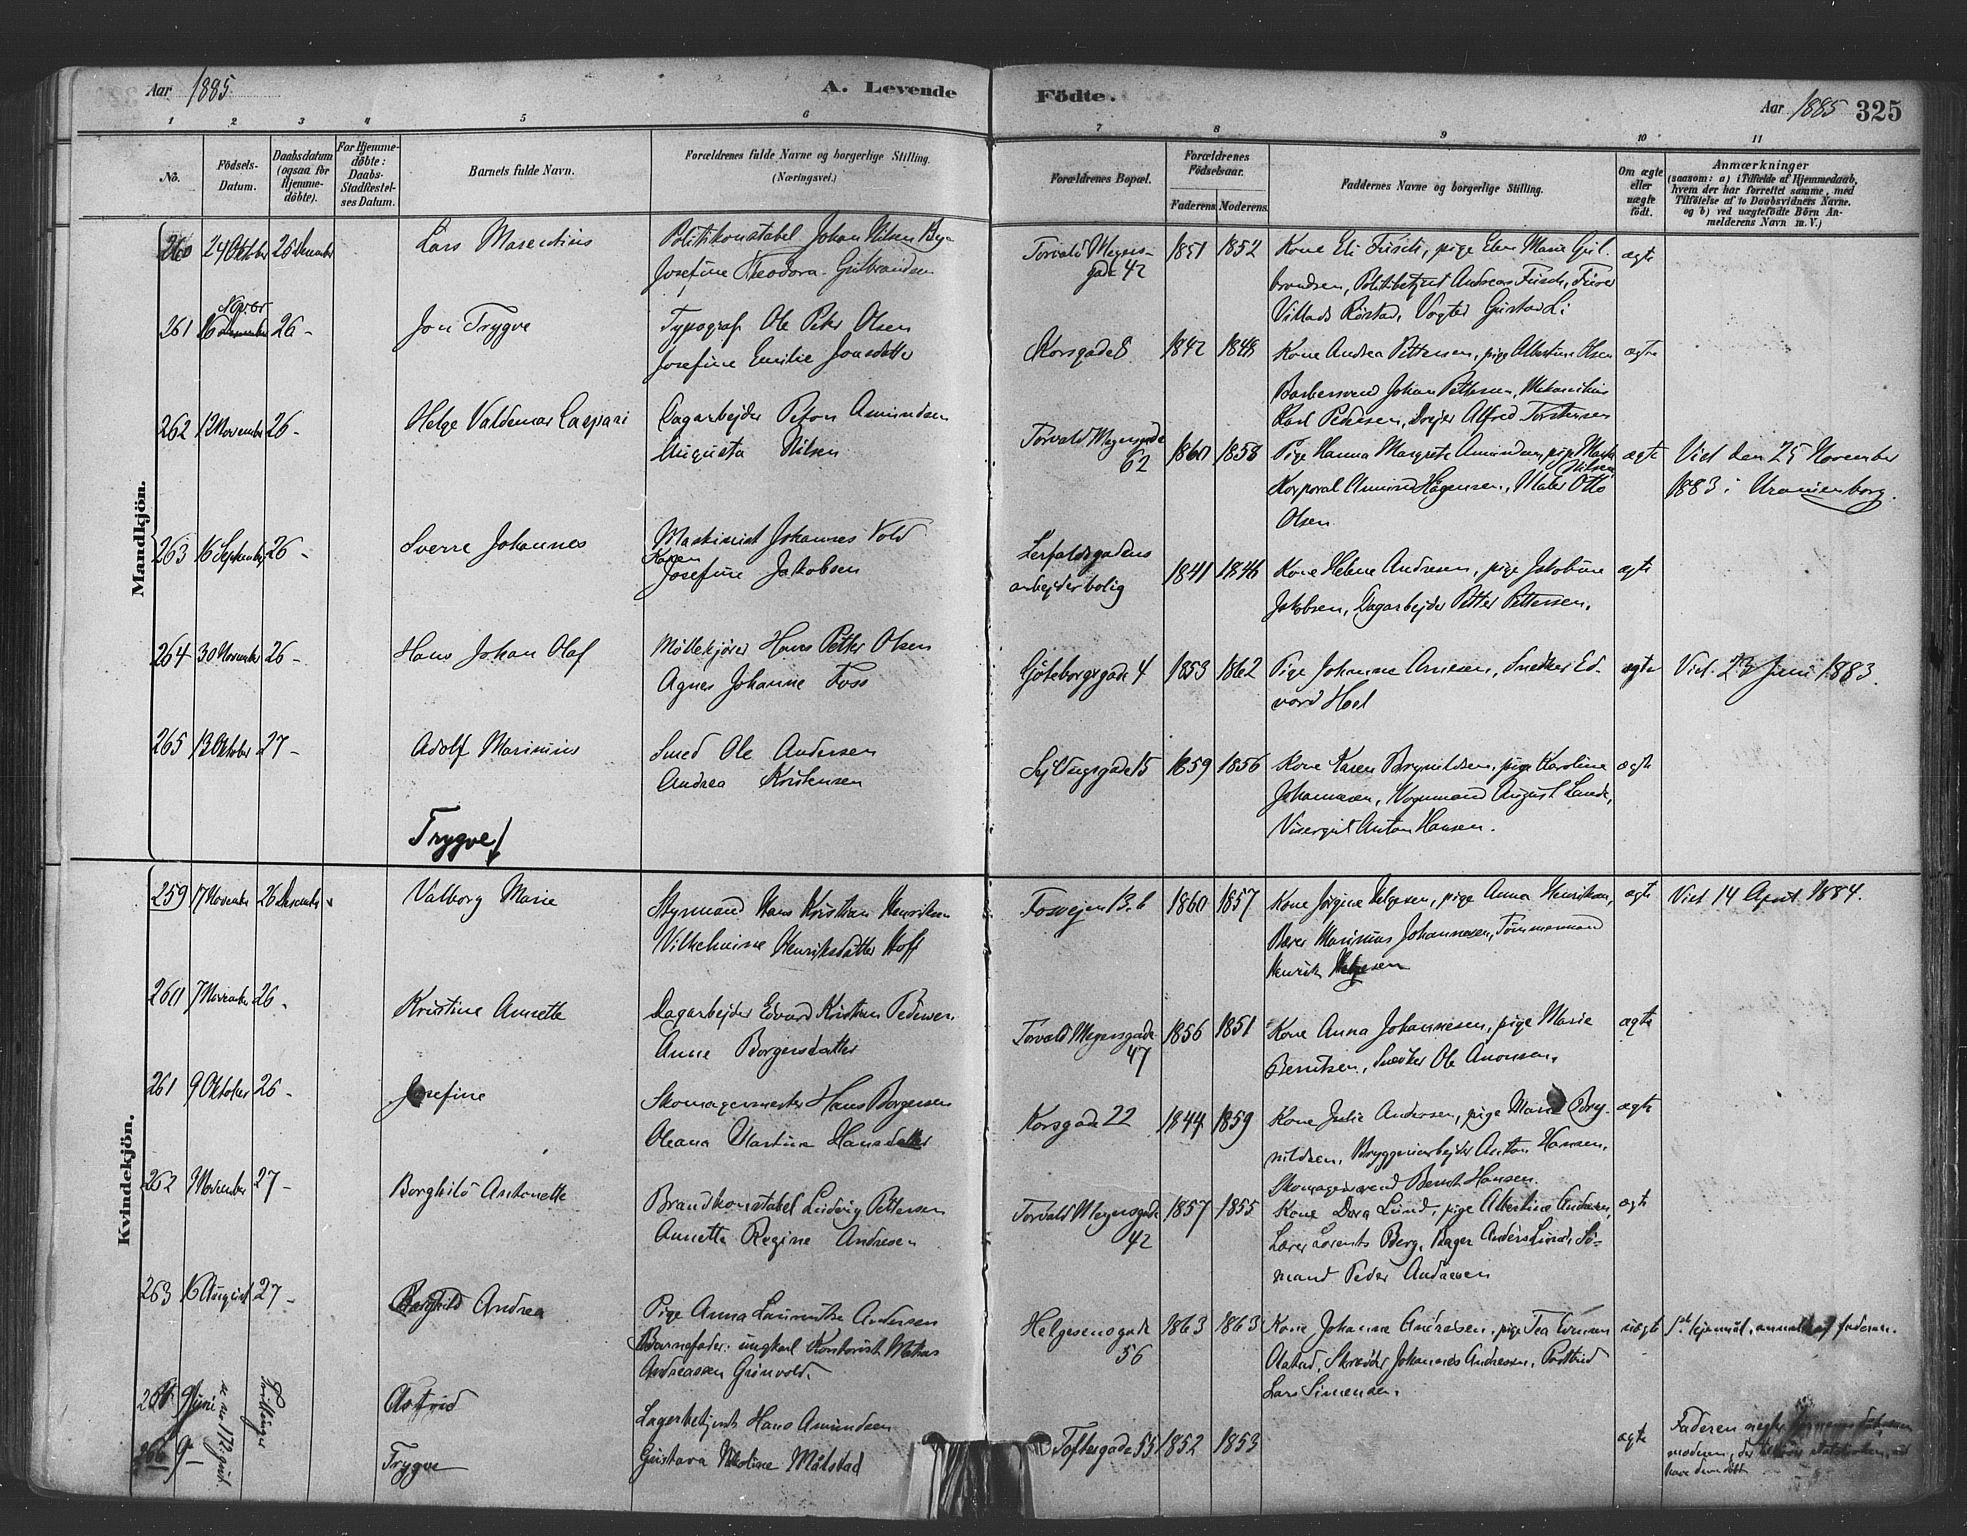 Aar 1885
A. Levende
Födte.
Aar 1885 325
1 2 3 4 5 6
7 8 9 10 11
No.
Födsels-
Datum.
Daabsdatum
(ogsaa for
Hjemme-
döbte).
For Hjemme-
döbte:
Daabs-
Stadfæstel-
ses Datum.
Barnets fulde Navn.
Forældrenes fulde Navne og borgerlige Stilling.
(Næringsvei.)
Forældrenes Bopæl.
Forældrenes
Födselsaar.
Faderens. Moderens.
Faddernes Navne og borgerlige Stilling.
Om ægte
eller
uægte
födt.
Anmærkninger
(saasom: a) i Tilfælde af Hjemmedaab,
hvem der har forrettet samme, med
Tilföielse af to Daabsvidners Navne.
og b) ved uægtefödte Börn An-
melderens Navn m. V.)
Mandkjön.
260 24 Oktober 26 Desember Lars Marentius Politikonstabel Johan Nilsen
Josefine Teodora Gulbrandsen
Torvald Meyers-
gade 42 1851 1852 Kone Eli Fusch, pige Elen Marie Gul-
brandsen, Politibetjent Andreas Fusch,
Rostad, Vogter Gustav Li ægte
Novbr
261 16 26 - Jon Trygve Typograf Ole Peter Olsen
Josefine Emilie Jonsdatter
Korsgade 8 1842 1848 Kone Andrea Pettersen, pige Albertine Olsen ægte
Barbersvend Johan Pettersen,
Karl Pedersen, Drejer Alfred Torstensen
262 12 November 26 - Helge Valdemar Caspari Dagarbejder Peton Amundsen
Augusta Nilsen
Torvald Meyersgade
62 1860 1858 Pige Hanna Margrete Amundsen, pige
Nilsen ægte Viet den 25 November
Korporal Amund Hagensen, Maler Otto 1883 i Uranienborg.
Olsen
263 16 September 26 - Sverre Johannes Maskinist Johannes Vold
Karen
Josefine Jakobsen
Lerfaldsgadens
arbejderbolig 1841 1846 Kone Helene Andresen, pige Jakobine ægte
Jakobsen, Dagarbejder Petter Pettersen.
264 30 November 26 - Hans Johan Olaf Möllekjörer Hans Petter Olsen
Agnes Johanne Foss
Göteborggade 4 1853 1862 Pige Johanne Arnesen, Snedker Ed- ægte Viet 23 Juni 1883.
vard Hoel
265 13 Oktober 27 - Adolf Marinius Smed Ole Andersen
Andrea Kristensen
15 1859 1856 Kone Karen Brynildsen, pige Karoline ægte
Johannesen, Vognmand August Lande,
Visergut Anton Hansen.
Trygve ↓
Kvindekjön.
259 17 November 26 Desember Valborg Marie Styrmand Hans Kristian Henriksen
Vilhelmine Henriksdatter Hoff
Fosvejen 13 b 1860 1857 Kone Jörgine Helgesen, pige Anna Henriksen, ægte Viet 14 April 1884.
Bærer Marinius Johannesen, Tömmermand
Henrik Helgesen
260 7 November 26 - Kristine Annette Dagarbejder Edvard Kristian Pedersen
Anne Borgersdatter
Torvald Meyersgade
47 1856 1851 Kone Anna Johannesen, pige Marie ægte
Berntsen, Snedker Ole Aronsen,
261 9 Oktober 26 - Josefine Skomagermester Hans Borgersen
Oleana Martine Hansdatter
Korsgade 22 1844 1859 Kone Julie Andersen, pige Marie Bryn- ægte
nildsen, Bryggeriarbejder Anton Hansen,
Skomagersvend Bernt Hansen.
262 9 November 27 - Borghild Antonette Brandkonstabel Ludvig Pettersen
Annette Regine Andresen
Torvald Meyersgade
42 1857 1855 Kone Dora Lund, pige Albertine Andresen, ægte
Lærer Lorents Berg, Bager Anders Lund, Sö-
mand Peder Andresen
263 16 August 27 - Borghild Andrea Pige Anna Laurentse Andersen
Barnefader: ungkarl Kontorist Mathias
Andreassen Grönvold.
Helgesensgade
56 1863 1863 Kone Johanne Andresen, pige Tea Evensen uægte 1ste lejermaal, anmeldt af faderen.
Olstad, Skrædder Johannes Andresen, Postbud
Lars Simensen.
9 Juni Astrid Lagerbetjent Hans Amundsen
266 9 - Trygve Gustava Nikoline Målstad
se no 172 august.
Tvillinger
Toftesgade 55 1852 1853 ægte Faderen negter
moderen, der
have dem döbt